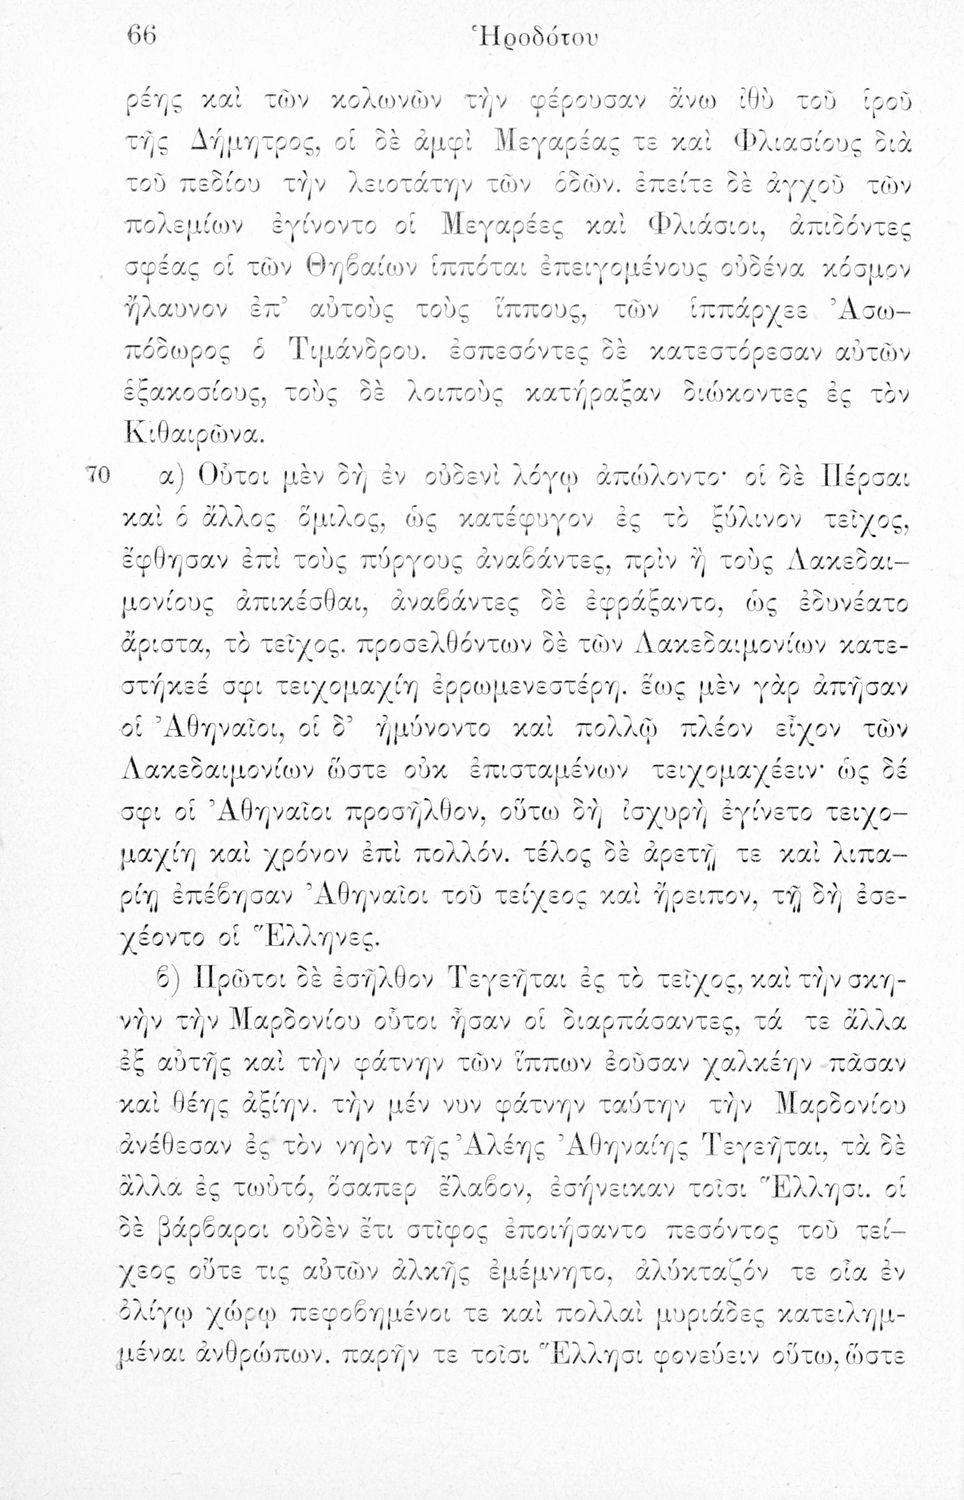 66 Ἡροδότου
ρέης καὶ τῶν κολωνῶν τὴν φέρουσαν ἄνω ἰθὺ τοῦ ἱροῦ
τῆς Δήμητρος, οἱ δὲ ἀμφὶ Μεγαρέας τε καὶ Φλιασίους διὰ
τοῦ πεδίου τὴν λειοτάτην τῶν ὁδῶν. ἐπείτε δὲ ἀγχοῦ τῶν
πολεμίων ἐγίνοντο οἱ Μεγαρέες καὶ Φλιάσιοι, ἀπιδόντες
σφέας οἱ τῶν Θηϐαίων ἱππόται ἐπειγομένους οὐδένα κόσμον
ἤλαυνον ἐπ’ αὐτοὺς τοὺς ἵππους, τῶν ἱππάρχεε Ἀσω–
πόδωρος ὁ Τιμάνδρου. ἐσπεσόντες δὲ κατεστόρεσαν αὐτῶν
ἑξακοσίους, τοὺς δὲ λοιποὺς κατήραξαν διώκοντες ἐς τὸν
Κιθαιρῶνα.
70 α) Οὗτοι μὲν δὴ ἐν οὐδενὶ λόγῳ ἀπώλοντο· οἱ δὲ Πέρσαι
καὶ ὁ ἄλλος ὅμιλος, ὡς κατέφυγον ἐς τὸ ξύλινον τεῖχος,
ἔφθησαν ἐπὶ τοὺς πύργους ἀναϐάντες, πρὶν ἢ τοὺς Λακεδαι–
μονίους ἀπικέσθαι, ἀναϐάντες δὲ ἐφράξαντο, ὡς ἐδυνέατο
ἄριστα, τὸ τεῖχος. προσελθόντων δὲ τῶν Λακεδαιμονίων κατε-
στήκεέ σφι τειχομαχίη ἐρρωμενεστέρη. ἕως μὲν γὰρ ἀπῆσαν
οἱ Ἀθηναῖοι, οἱ δ’ ἠμύνοντο καὶ πολλῷ πλέον εἶχον τῶν
Λακεδαιμονίων ὥστε οὐκ ἐπισταμένων τειχομαχέειν· ὡς δέ
σφι οἱ Ἀθηναῖοι προσῆλθον, οὕτω δὴ ἰσχυρὴ ἐγίνετο τειχο–
μαχίη καὶ χρόνον ἐπὶ πολλόν. τέλος δὲ ἀρετῇ τε καὶ λιπα–
ρίῃ ἐπέϐησαν Ἀθηναῖοι τοῦ τείχεος καὶ ἤρειπον, τῇ δὴ ἐσε-
χέοντο οἱ Ἕλληνες.
ϐ) Πρῶτοι δὲ ἐσῆλθον Τεγεῆται ἐς τὸ τεῖχος, καὶ τὴν σκη-
νὴν τὴν Μαρδονίου οὗτοι ἦσαν οἱ διαρπάσαντες, τά τε ἄλλα
ἐξ αὐτῆς καὶ τὴν φάτνην τῶν ἵππων ἐοῦσαν χαλκέην πᾶσαν
καὶ θέης ἀξίην. τὴν μέν νυν φάτνην ταύτην τὴν Μαρδονίου
ἀνέθεσαν ἐς τὸν νηὸν τῆς Ἀλέης Ἀθηναίης Τεγεῆται, τὰ δὲ
ἄλλα ἐς τωὐτό, ὅσαπερ ἔλαϐον, ἐσήνεικαν τοῖσι Ἕλλησι. οἱ
δὲ βάρϐαροι οὐδὲν ἔτι στῖφος ἐποιήσαντο πεσόντος τοῦ τεί–
χεος οὔτε τις αὐτῶν ἀλκῆς ἐμέμνητο, ἀλύκταζόν τε οἷα ἐν
ὀλίγῳ χώρῳ πεφοϐημένοι τε καὶ πολλαὶ μυριάδες κατειλημ-
μέναι ἀνθρώπων. παρῆν τε τοῖσι Ἕλλησι φονεύειν οὕτω, ὥστε